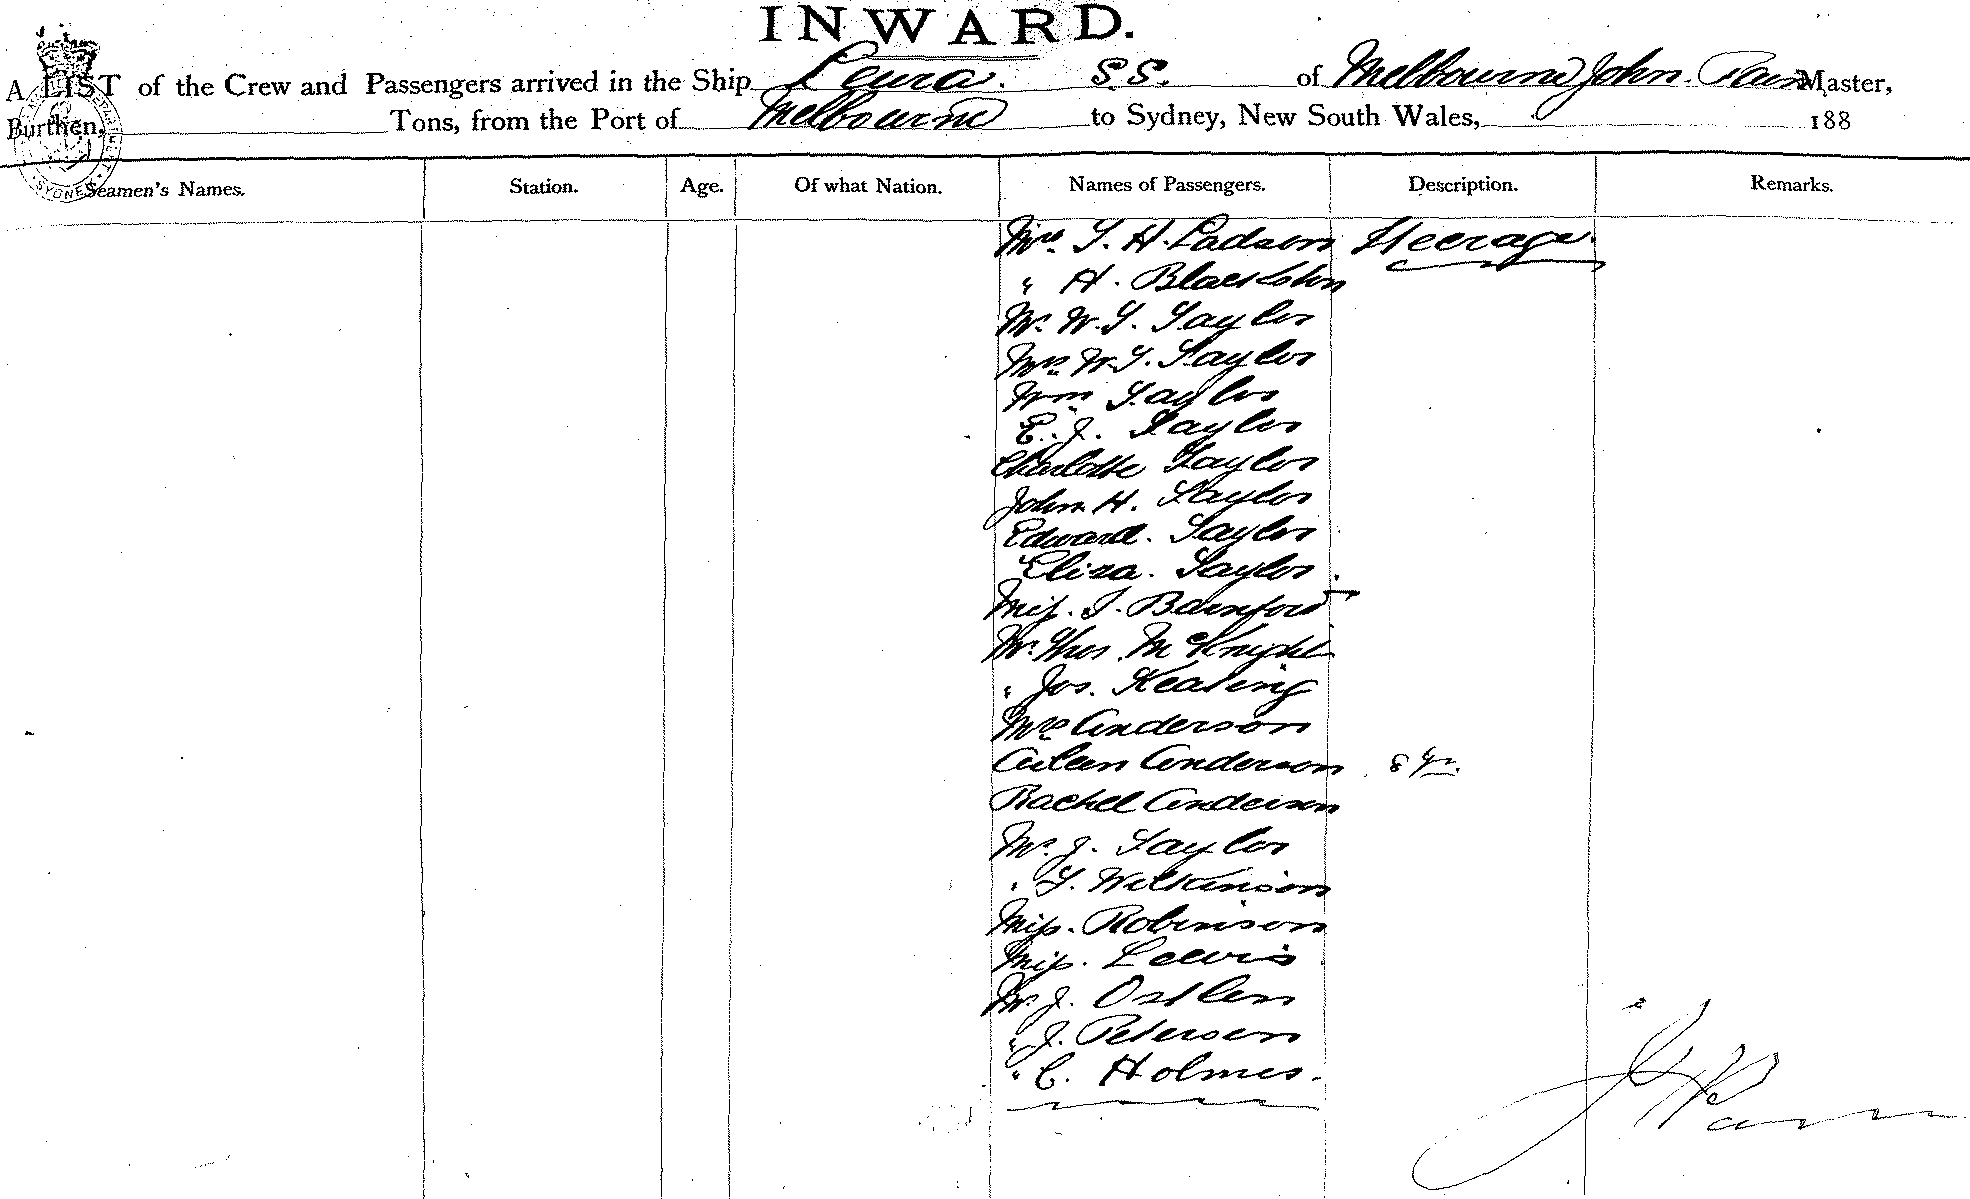 INWARD.
A LIST of the Crew and Passengers arrived in the Ship Leura. S.S. of Melbourne John Master,
Burthen, Tons, from the Port of Melbourne to Sydney, New South Wales, 188
Seamen's Names. Station. Age. Of what Nation. Names of Passengers. Description. Remarks.
SYDNEY
Mrs. T. H. Ladson Steerage.
" H. Blackston
Mr. W. T. Taylor
Mrs. W. T. Taylor
Wm Taylor
E. J. Taylor
Charlotte Taylor
John H. Taylor
Edward. Taylor
Eliza. Taylor
Miss. T. Bamford
Mr. Thos. McKnight
" Jos. Keating
Mrs Anderson
Eileen Anderson 8 yrs.
Rachel Anderson
Mr. J. Taylor
" T. Wilkinson
Miss. Robinson
Miss. Lewis
Mr. J. Ostlen
" J. Petersen
" C. Holmes.